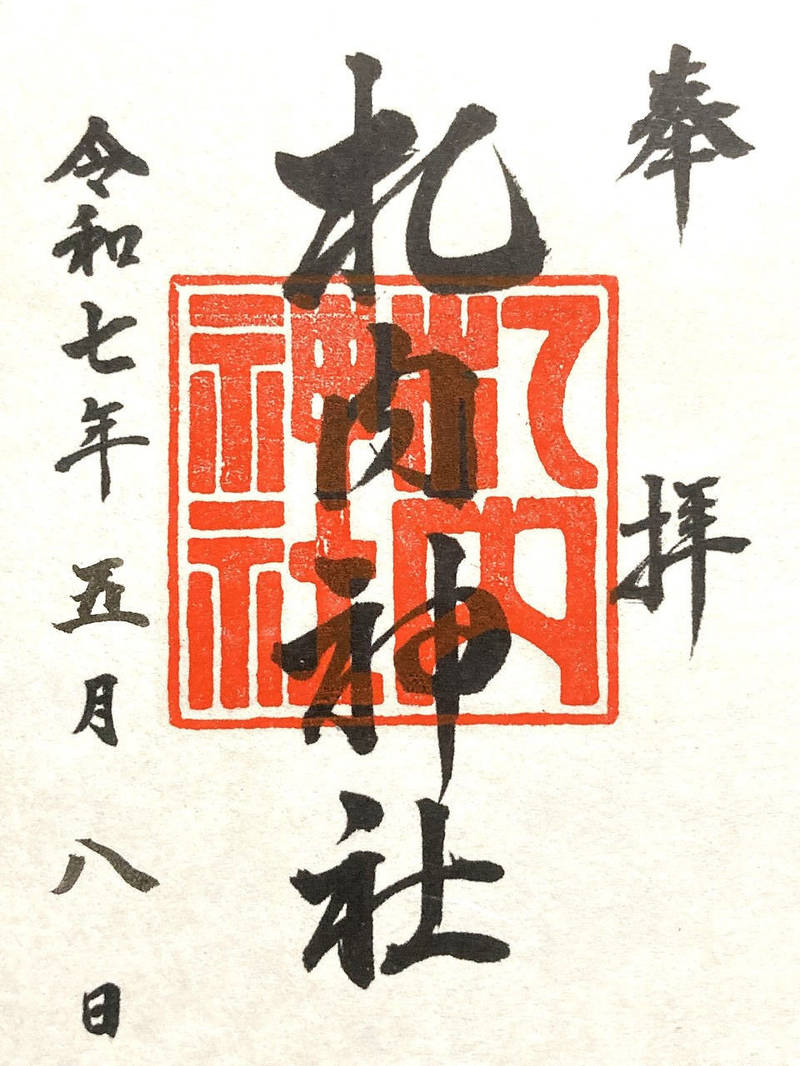 奉拝
札内神社
札内神社
令和七年五月八日